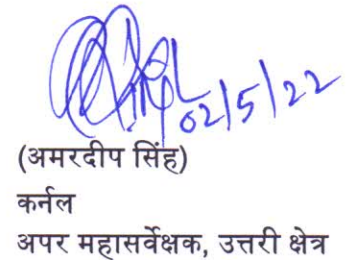 02/5/22
(अमरदीप सिंह)
कर्नल
अपर महासर्वेक्षक, उत्तरी क्षेत्र